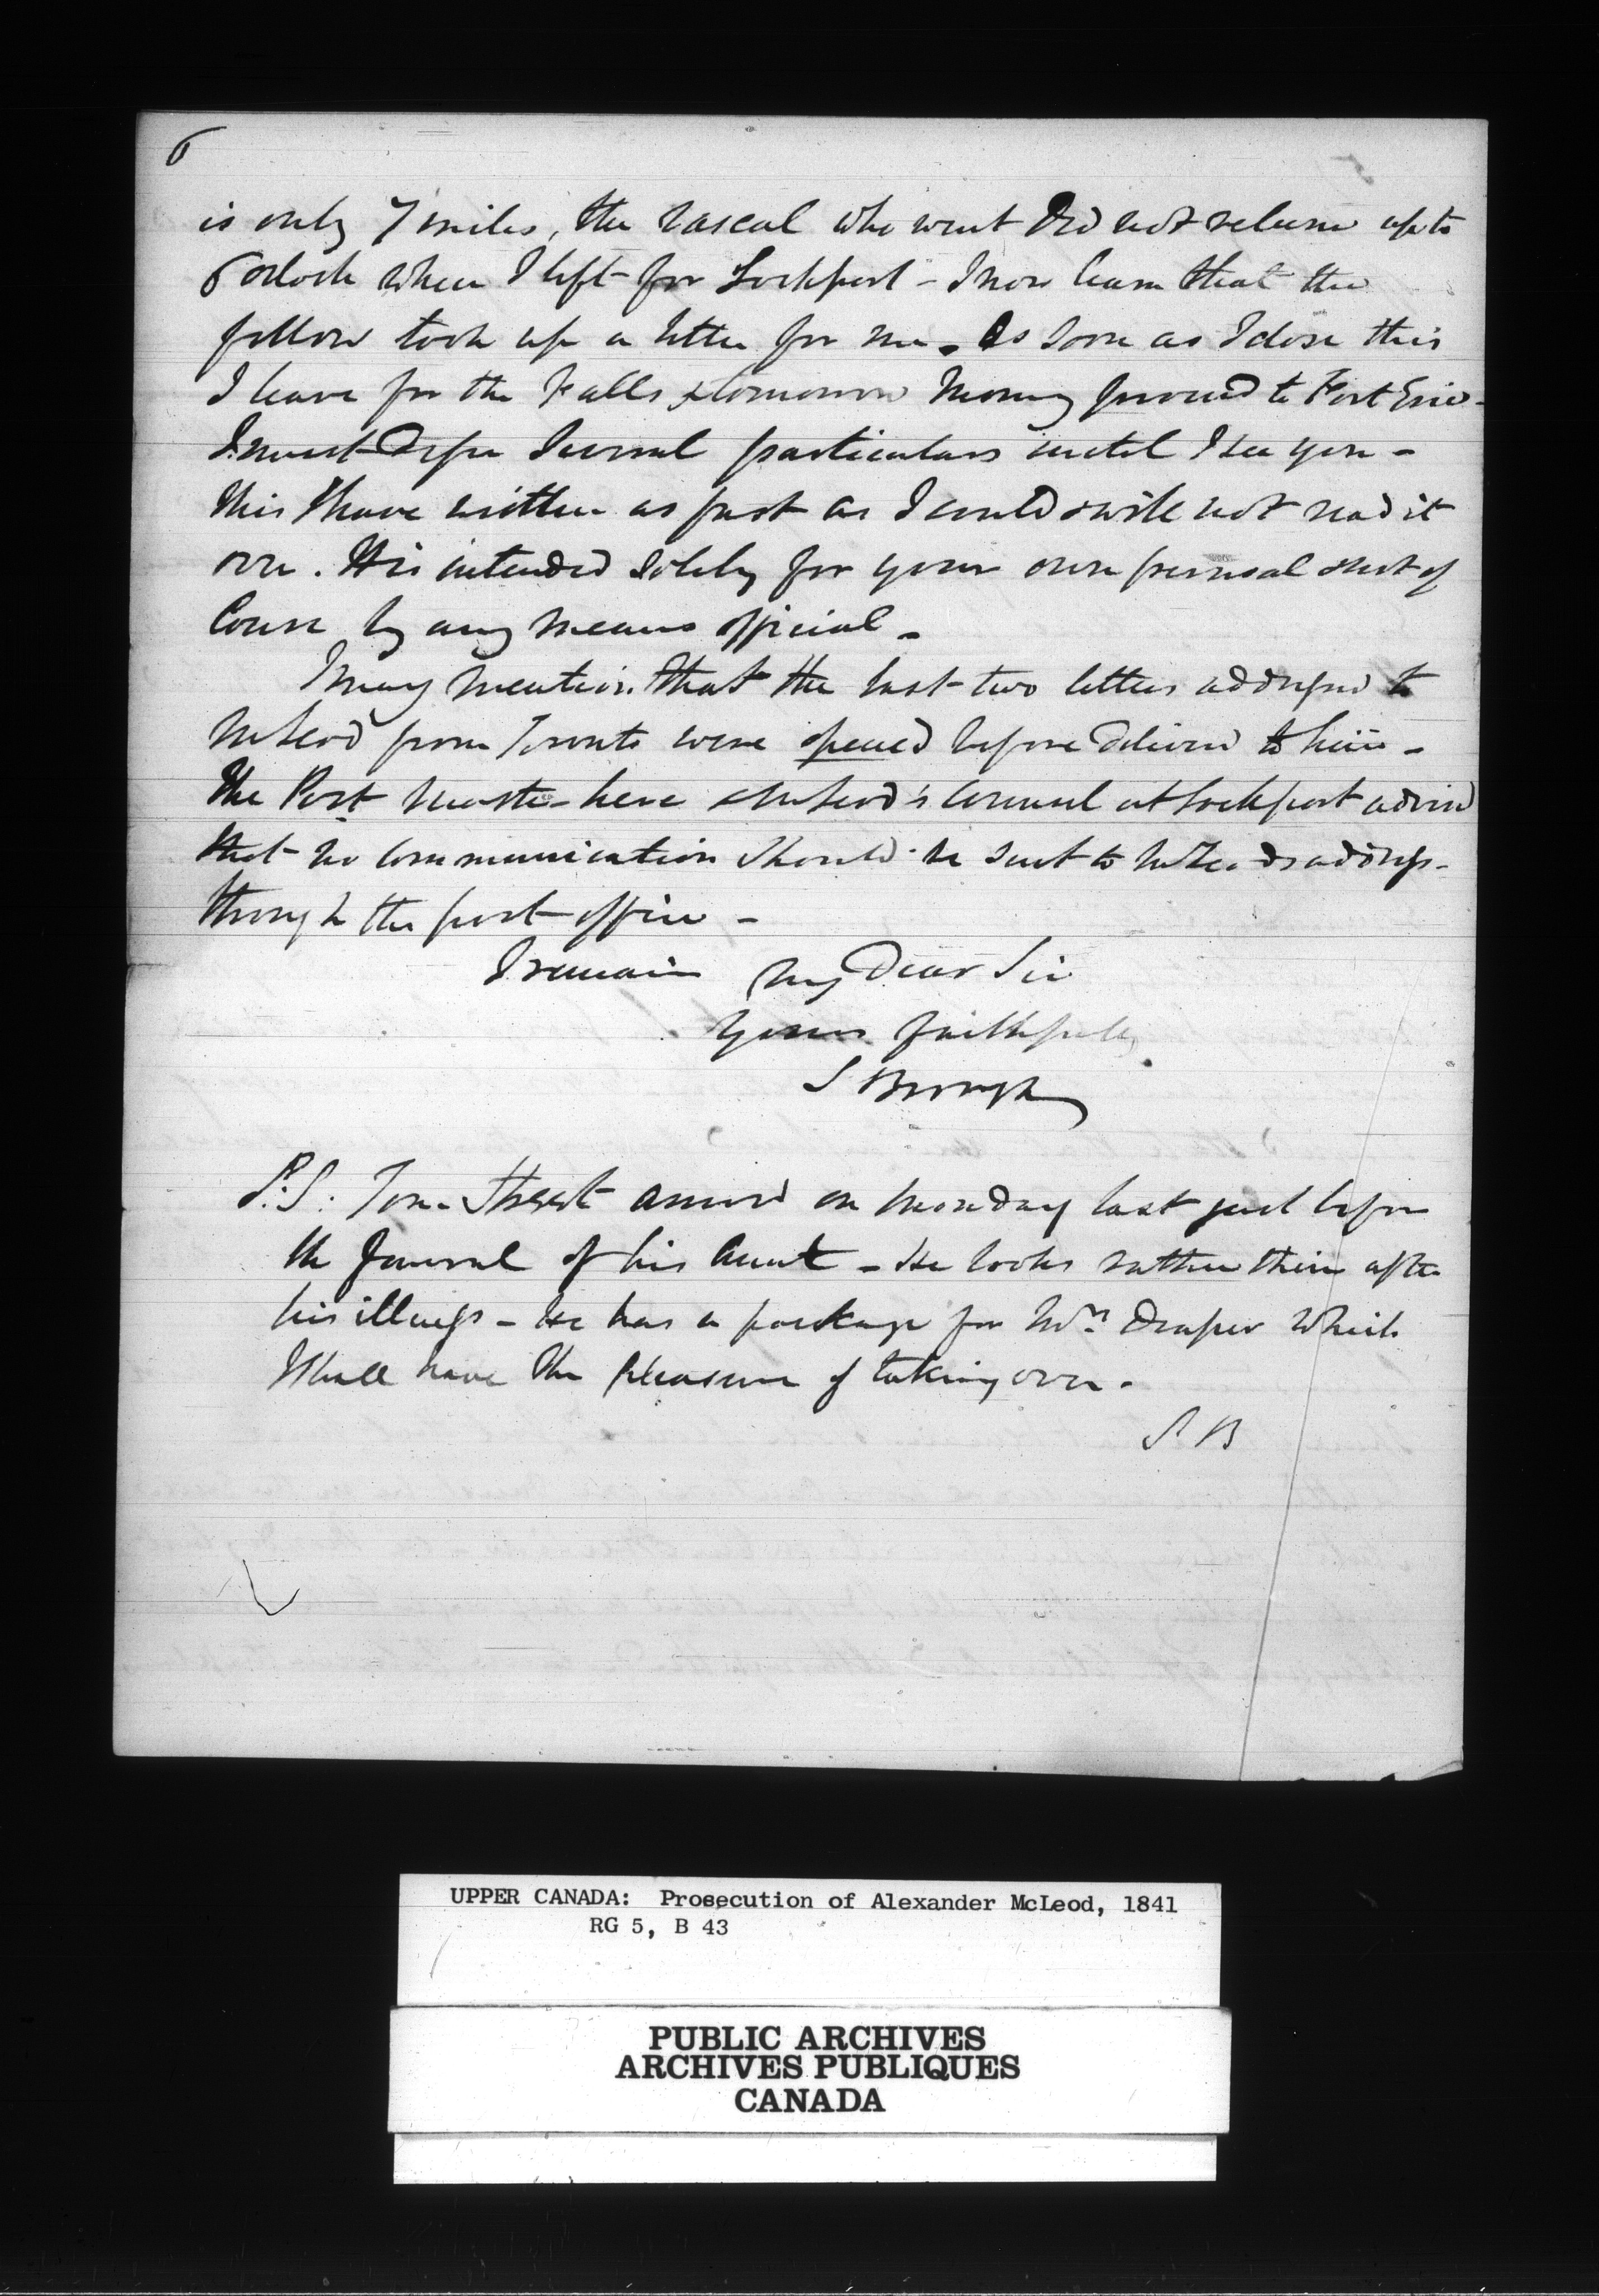 6
is only 7 miles, the rascal who went did not return up to
6 oclock when I left for Lockport - I now learn that the
fellow took up a letter for me. As soon as I close this
I leave for the Falls & tomorrow Morning proceed to Fort Erie -
I must defer several particulars until I see you -
this I have written as fast as I could & will not read it
over. It is intended solely for your own perusal & not of
Course by any means official -
I may mention that the last two letters addressed to
McLeod from Toronto were opened before delivered to him -
The Post Master here & McLeod's Counsel at Lockport advised
that no Communication should be sent to McLeod's address
through the post office -
I remain My Dear Sir
Yours faithfully
S Brough
P.S. Tom Street arrived on Monday last just before
the funeral of his Aunt - He looks rather thin after
his illness - He has a package for Mrs Draper which
I shall have the pleasure of taking over -
S B
UPPER CANADA: Prosecution of Alexander McLeod, 1841
RG 5, B 43
PUBLIC ARCHIVES
ARCHIVES PUBLIQUES
CANADA